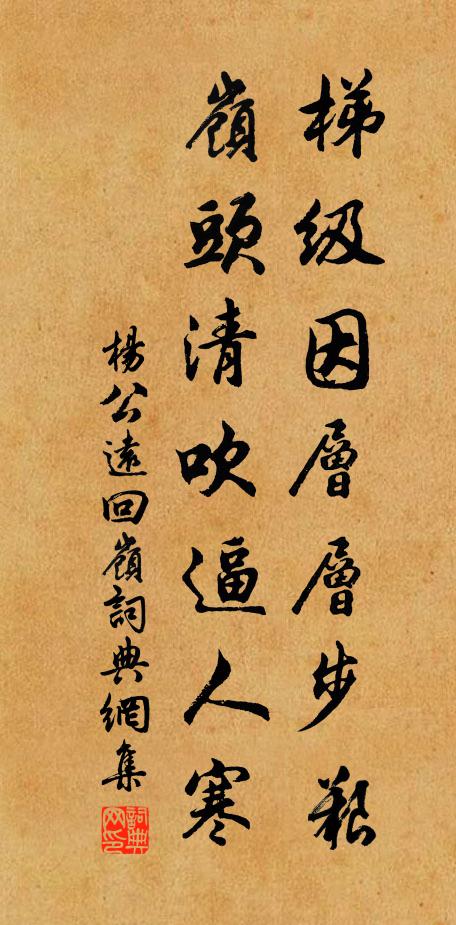 梯级因層層步艱
嶺頭清吹逼人寒
楊公遠回嶺詞典網集
詞典网印